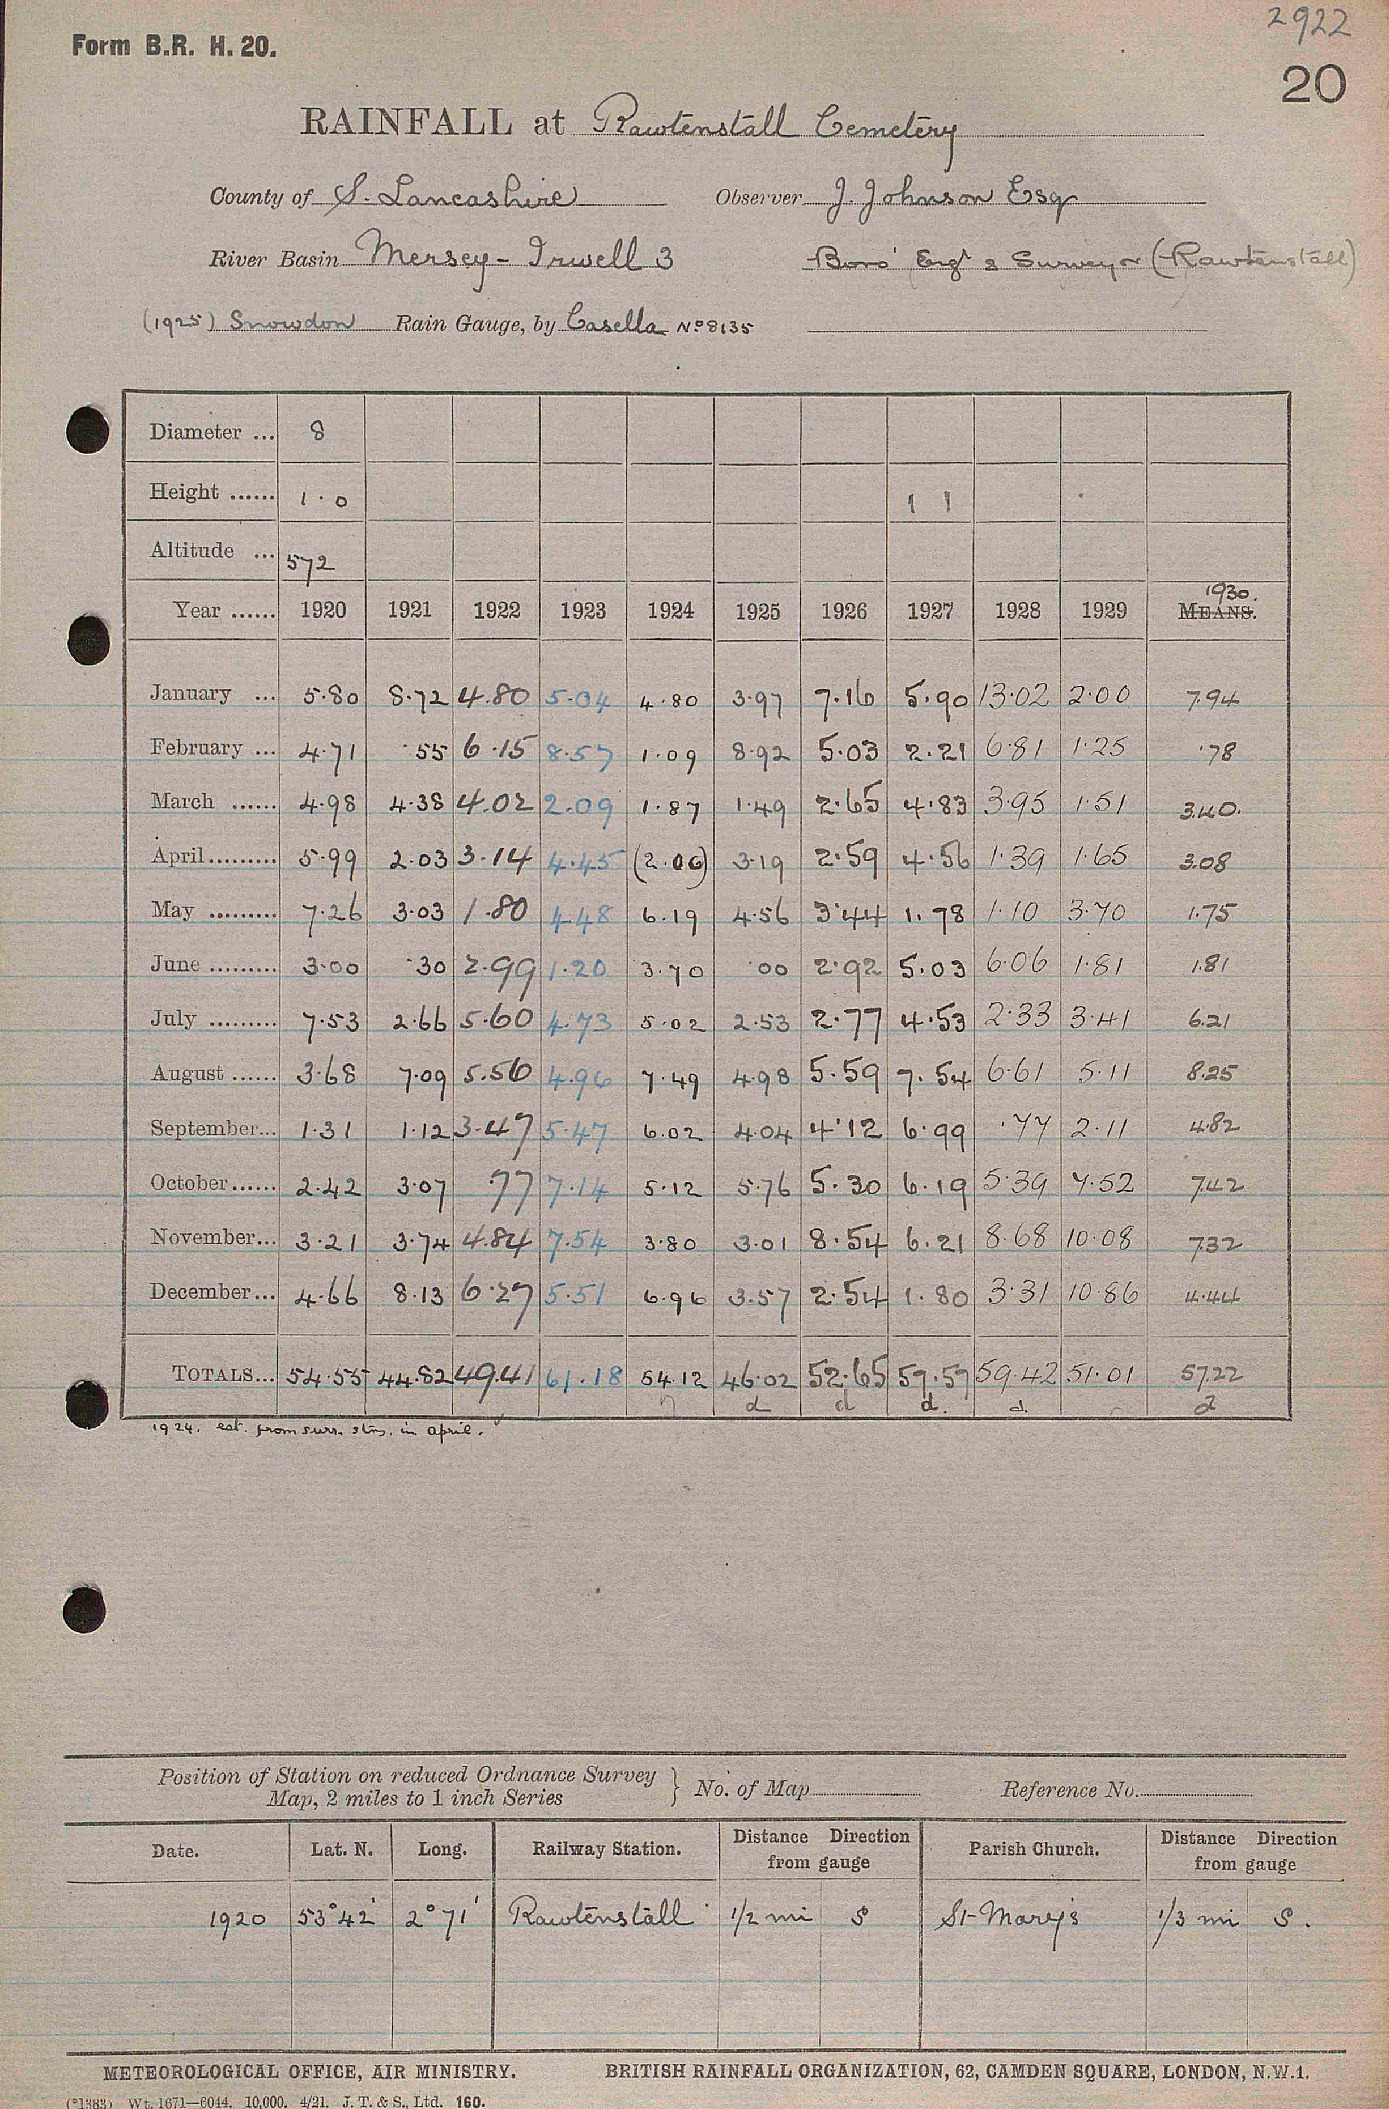 2922
Form B.R. H. 20.
20
RAINFALL at Rawtenstall Cemetery
County of S. Lancashire Observer J. Johnson Esq
River Basin Mersey - Irwell 3 Boro' Engr & Surveyor (Rawtenstall)
(1925) Snowdon Rain Gauge, by Casella No 8135
Diameter ... 8
Height ...... 1 . 0 1 1
Altitude ... 572
1930.
Year ...... 1920 1921 1922 1923 1924 1925 1926 1927 1928 1929 MEANS.
January ... 5.80 8.72 4.80 5.04 4.80 3.97 7.16 5.90 13.02 2.00 7.94
February ... 4.71 .55 6.15 8.57 1.09 8.92 5.03 2.21 6.81 1.25 .78
March ...... 4.98 4.38 4.02 2.09 1.87 1.49 2.65 4.83 3.95 1.51 3.40.
April ......... 5.99 2.03 3.14 4.45 (2.06) 3.19 2.59 4.56 1.39 1.65 3.08
May ......... 7.26 3.03 1.80 4.48 6.19 4.56 3.44 1.78 1.10 3.70 1.75
June ......... 3.00 .30 2.99 1.20 3.70 .00 2.92 5.03 6.06 1.81 1.81
July ......... 7.53 2.66 5.60 4.73 5.02 2.53 2.77 4.53 2.33 3.41 6.21
August ...... 3.68 7.09 5.56 4.96 7.49 4.98 5.59 7.54 6.61 5.11 8.25
September... 1.31 1.12 3.47 5.47 6.02 4.04 4.12 6.99 .77 2.11 4.82
October...... 2.42 3.07 .77 7.14 5.12 5.76 5.30 6.19 5.39 7.52 7.42
November... 3.21 3.74 4.84 7.54 3.80 3.01 8.54 6.21 8.68 10.08 7.32
December... 4.66 8.13 6.27 5.51 6.96 3.57 2.54 1.80 3.31 10.86 4.44
TOTALS... 54.55 44.82 49.41 61.18 54.12 46.02 52.65 57.57 59.42 51.01 57.22
d d d. d. d
1924. est. from surr. stns. in april.
Position of Station on reduced Ordnance Survey
Map, 2 miles to 1 inch Series } No. of Map Reference No.
Date. Lat. N. Long. Railway Station. Distance Direction from gauge Parish Church. Distance Direction from gauge
1920 53°42' 2°71' Rawtenstall 1/2 mi S St-Mary's 1/3 mi S.
METEOROLOGICAL OFFICE, AIR MINISTRY. BRITISH RAINFALL ORGANIZATION, 62, CAMDEN SQUARE, LONDON, N.W.1.
(*1383) Wt. 1671—6044. 10,000. 4/21. J. T. & S., Ltd. 160.